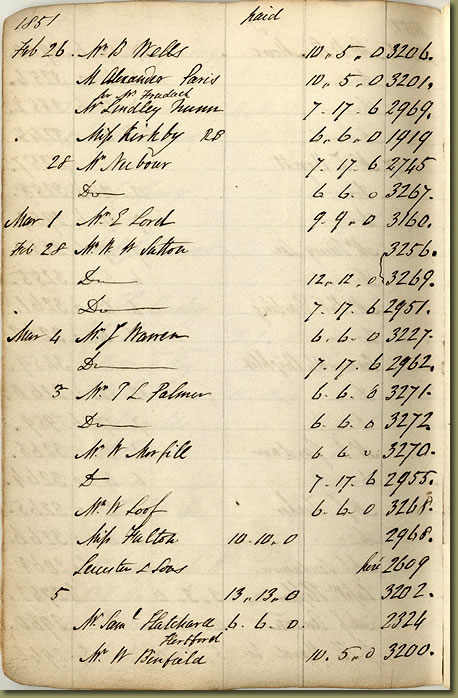 1851 paid
Feb 26. Mr B Wells 10.. 5.. 0 3206.
M Alexander Paris 10.. 5.. 0 3201.
for Mr
Mr Lindley Nunn 7. 17. 6 2969.
Miss Kirkby RB 6.. 6.. 0 1919
28 Mr Neebour 7. 17. 6 2745
Do 6 6. 0 3267.
Mar 1 Mr E Lord 9.. 9.. 0 3160.
Feb 28 Mr. W. W Sutton 3256.
Do 12.. 12.. 0 3269.
Do 7. 17. 6 2951.
Mar 4 Mr. J Warren 6. 6. 0 3227.
Do 7. 17. 6 2962.
3 Mr. T L Palmer 6. 6. 0 3271.
Do 6. 6. 0 3272
Mr. W Morfill 6 6. 0 3270.
D 7. 17. 6 2955.
Mr W Loof 6. 6. 0 3268.
Miss Fulton 10. 10.. 0 2968.
Leicester & Sons hire 2609
5 13.. 13.. 0 3202.
Mr. Saml Hatchard 6. 6. 0. 2324
Hertford
Mr. W Benfield 10. 5.. 0 3200.